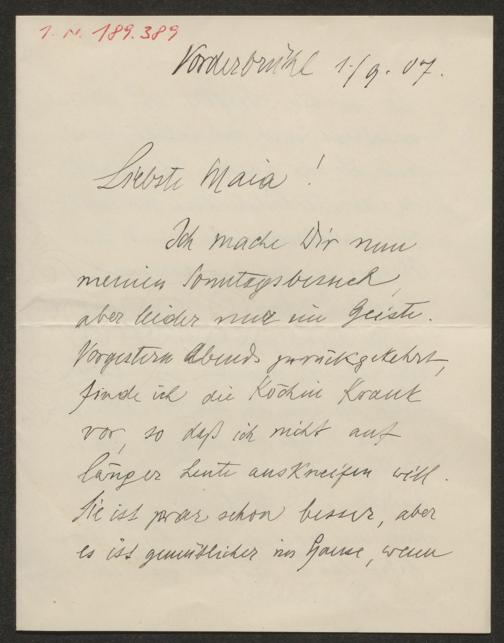 I. N. 189.389
Vorderbrühl 1./9. 07.
Liebste Maia!
Ich mache Dir nun
meinen Sonntagsbesuch,
aber leider nur im Geiste.
Vorgestern Abends zurückgekehrt,
finde ich die Köchin krank
vor, so daß ich nicht auf
länger heute auskneifen will.
Sie ist zwar schon besser, aber
es ist gemütlicher im Hause, wenn